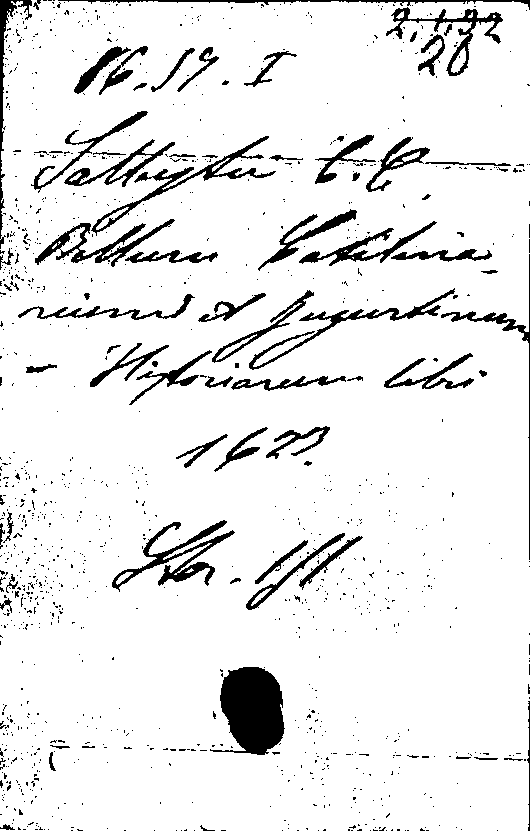 2.1.32
20
86.57.I
Sallustii C. C.
Bellum Catilina-
rium et Jugurtinum
- Historiarum libri
1623.